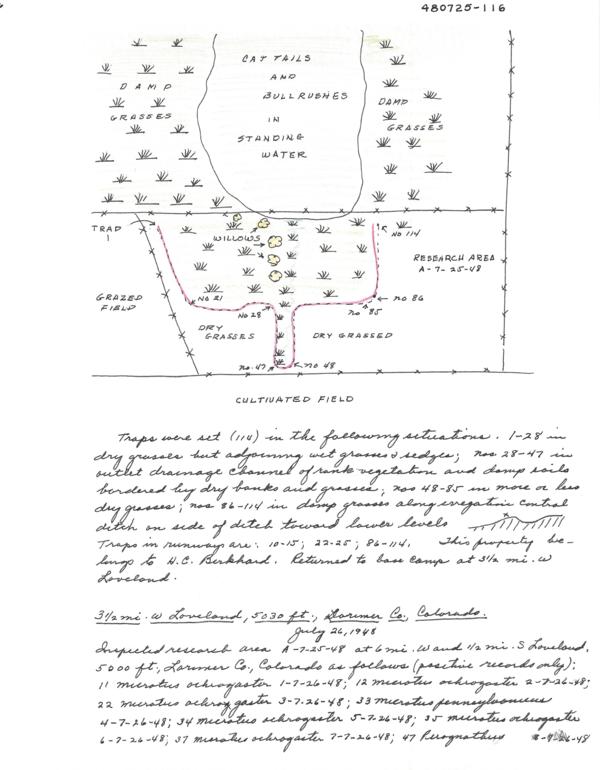 480725-116
CAT TAILS
AND
BULLRUSHES
IN
STANDING
WATER
DAMP
GRASSES
DAMP
GRASSES
TRAP
1
WILLOWS
NO 114
RESEARCH AREA
A-7-25-48
GRAZED
FIELD
NO 21
NO 28
no 86
no 85
DRY
GRASSES
DRY GRASSED
no. 47
no 48
CULTIVATED FIELD
Traps were set (114) in the following situations. 1-28 in
dry grasses but adjoining wet grasses & sedges; nos 28-47 in
outlet drainage channel of rank vegetation and damp soils
bordered by dry banks and grasses; nos 48-85 in more or less
dry grasses; nos 86-114 in damp grasses along irrigation control
ditch on side of ditch toward lower levels
Traps in runways are: 10-15; 22-25; 86-114. This property be-
longs to H.C. Berkhard. Returned to base camp at 3½ mi. W
Loveland.
3½ mi. W Loveland, 5030 ft., Larimer Co., Colorado.
July 26, 1948
Inspected research area A-7-25-48 at 6 mi. W and ½ mi. S Loveland,
5000 ft, Larimer Co, Colorado as follows (positive records only):
11 microtus ochrogaster 1-7-26-48; 12 microtus ochrogaster 2-7-26-48;
22 microtus ochrogaster 3-7-26-48; 33 microtus pennsylvanicus
4-7-26-48; 34 microtus ochrogaster 5-7-26-48; 35 microtus ochrogaster
6-7-26-48; 37 microtus ochrogaster 7-7-26-48; 47 Perognathus 8-7-26-48